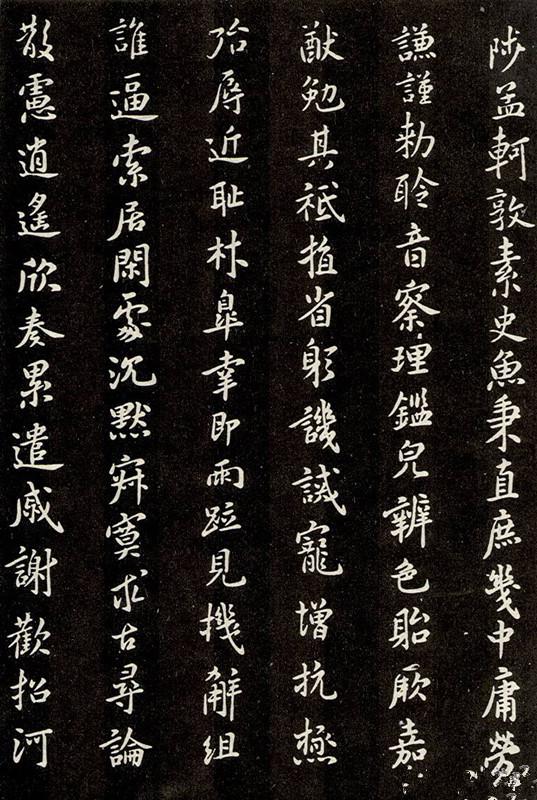 陟孟軻敦素史魚秉直庶幾中庸勞
謙謹勑聆音察理鑑皃辨色貽厥嘉
猷勉其祗植省躬譏誡寵增抗極
殆辱近耻林皐幸即兩疏見機解組
誰逼索居閑處沉默寂寞求古尋論
散慮逍遙欣奏累遣慼謝歡招河